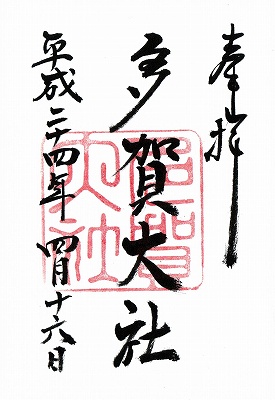 奉拝
多賀大社
多賀大社
平成二十四年 四月十六日